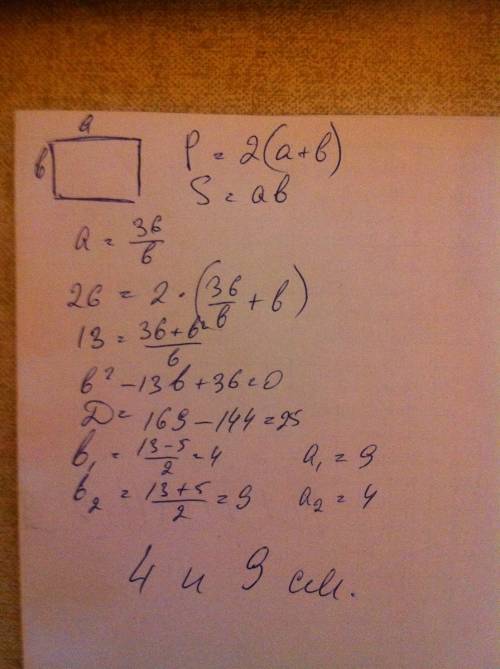 a
в
P = 2(a+в)
S = aв
a = 36/в
26 = 2 · (36/в + в)
13 = 36+в²/в
в² - 13в + 36 = 0
D = 169 - 144 = 25
в₁ = 13-5/2 = 4 a₁ = 9
в₂ = 13+5/2 = 9 a₂ = 4
4 и 9 см.